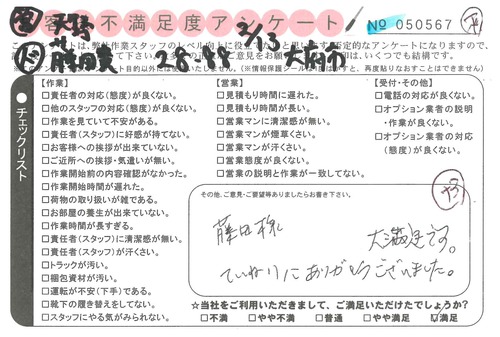 お客様不満足度アンケート
№ 050567
2/13
【作業】
□責任者の対応(態度)が良くない。
□他のスタッフの対応(態度)が良くない。
□作業を見ていて不安がある。
□責任者(スタッフ)に好感が持てない。
□お客様への挨拶が出来ていない。
□ご近所への挨拶・気遣いが無い。
□作業開始前の内容確認がなかった。
□作業開始時間が遅れた。
□荷物の取り扱いが雑である。
□お部屋の養生が出来ていない。
□作業時間が長すぎる。
□責任者(スタッフ)に清潔感が無い。
□責任者(スタッフ)が汗くさい。
□トラックが汚い。
□梱包資材が汚い。
□運転が不安(下手)である。
□靴下の履き替えをしてない。
□スタッフにやる気がみられない。
チェックリスト
【営業】
□見積もり時間に遅れた。
□見積もり時間が長い。
□営業マンに清潔感が無い。
□営業マンが煙草くさい。
□営業マンが汗くさい。
□営業態度が良くない。
□営業の説明と作業が一致してない。
【受付・その他】
□電話の対応が良くない。
□オプション業者の説明
・作業が良くない。
□オプション業者の対応
(態度)が良くない。
その他、ご意見・ご要望等ありましたらお書き下さい。
藤田様
大満足です。
ていねいにありがとうございました。
☆当社をご利用いただきまして、ご満足いただけたでしょうか?
□不満 □やや不満 □普通 □やや満足 ☑満足